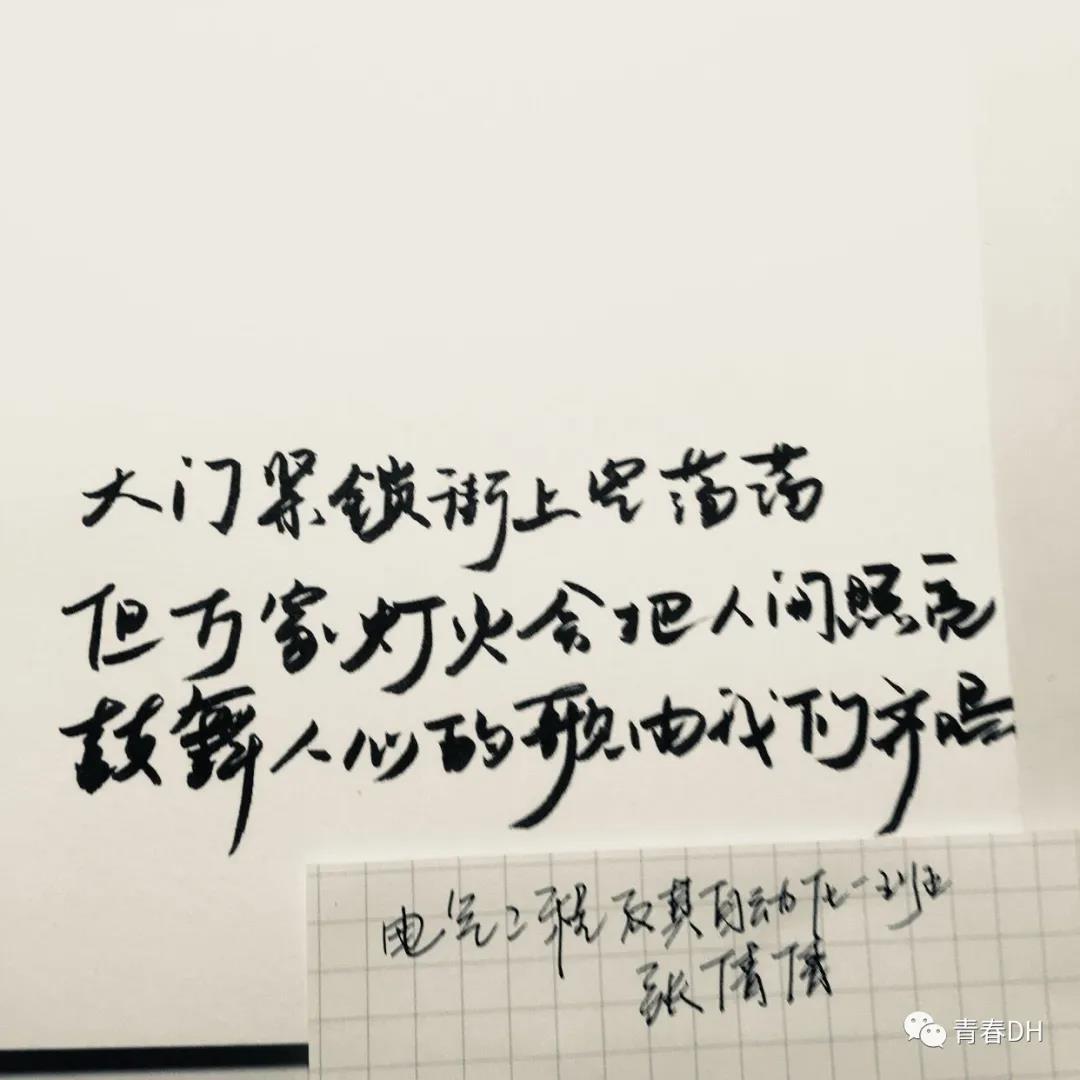 大门紧鎖街上空荡荡
但万家灯火会把人间照亮
鼓舞人心的歌由我们齐唱
电气工程及其自动化一班
张倩倩
青春DH